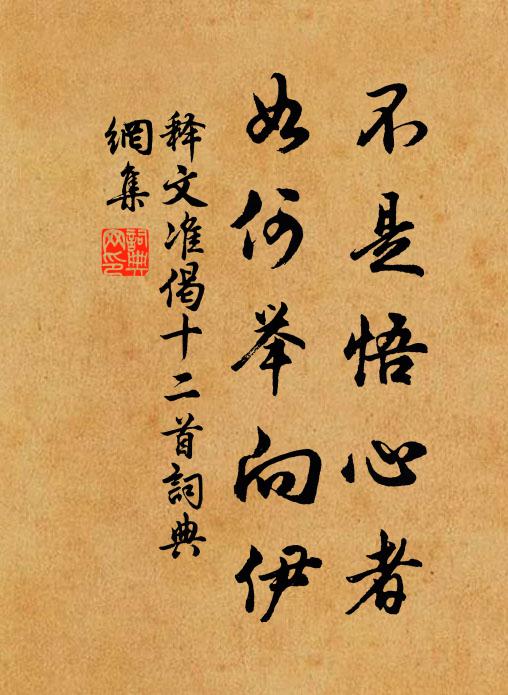 不是悟心者
如何举向伊
释文准偈十二首詞典
網集
詞典
网印